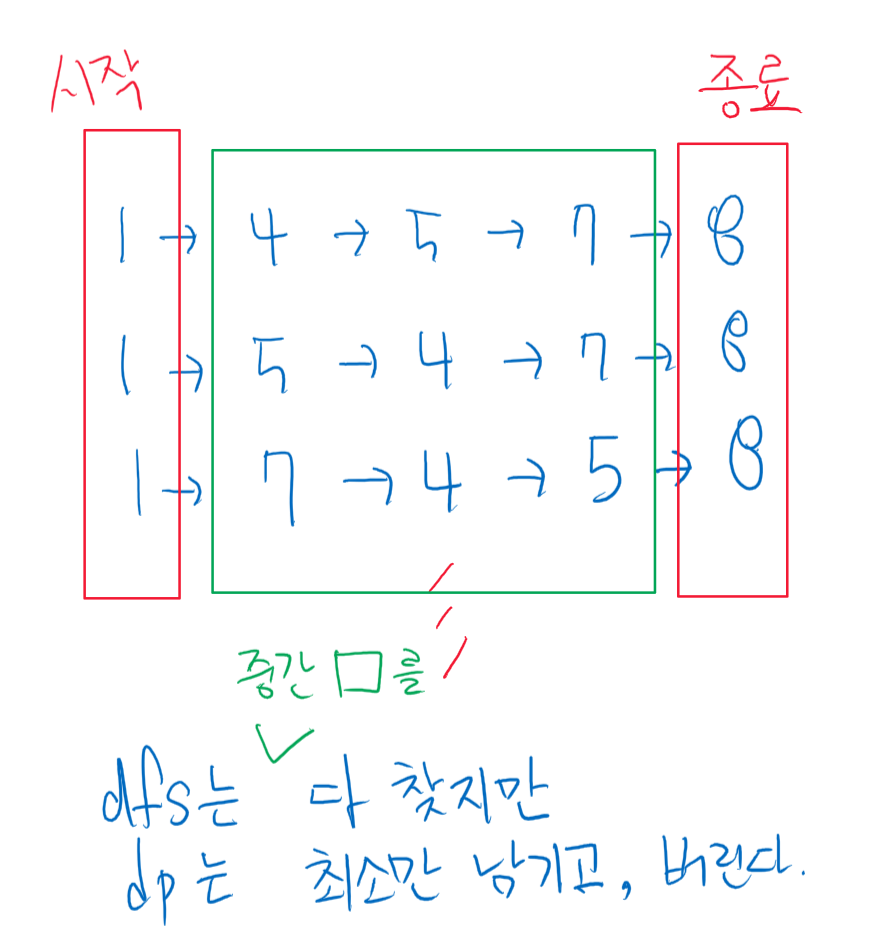 시작 종료
1 → 4 → 5 → 7 → 8
1 → 5 → 4 → 7 → 8
1 → 7 → 4 → 5 → 8
중간 □를
dfs는 다 찾지만
dp는 최소만 남기고, 버린다.